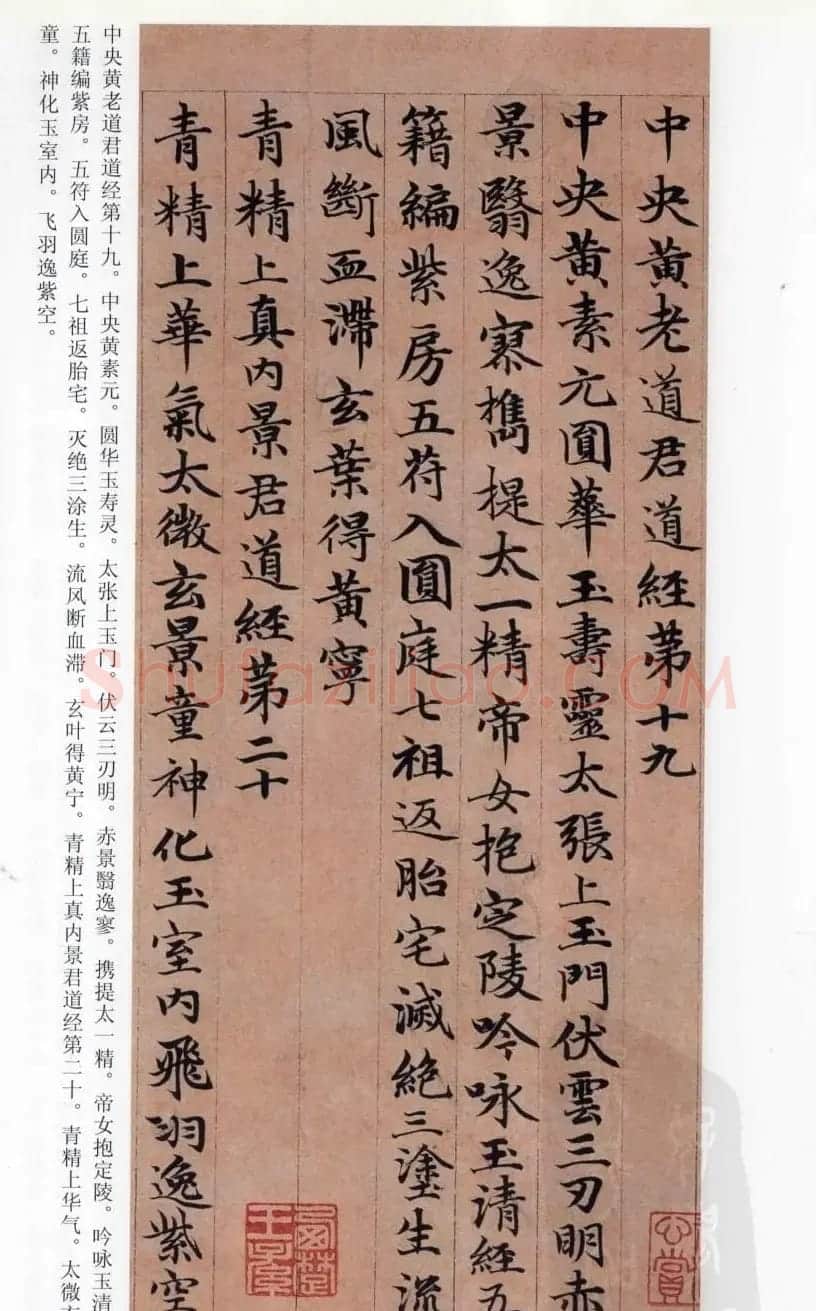 中央黃老道君道經第十九
中央黃素元圓華玉壽靈太張上玉門伏雲三刃明赤
景翳逸寥攜提太一精帝女抱定陵吟咏玉清經五
籍編紫房五符入圓庭七祖返胎宅滅絕三塗生流
風斷血滯玄葉得黃寧
青精上真内景君道經第二十
青精上華氣太微玄景童神化玉室内飛羽逸紫空
中央黄老道君道经第十九。中央黄素元。圆华玉寿灵。太张上玉门。伏云三刃明。赤景翳逸寥。携提太一精。帝女抱定陵。吟咏玉清
五籍编紫房。五符入圆庭。七祖返胎宅。灭绝三涂生。流风断血滞。玄叶得黄宁。青精上真内景君道经第二十。青精上华气。太微玄
童。神化玉室内。飞羽逸紫空。
shufaziliao.COM